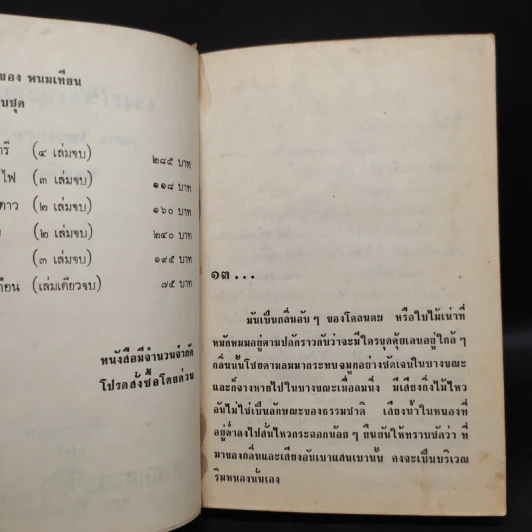 ของ พนมเทียน
บชุด
รี (๔ เล่มจบ) ๒๘๕ บาท
ไฟ (๓ เล่มจบ) ๑๑๘ บาท
ดาว (๒ เล่มจบ) ๑๖๐ บาท
(๒ เล่มจบ) ๒๔๐ บาท
(๓ เล่มจบ) ๑๙๕ บาท
ดือน (เล่มเดียวจบ) ๗๕ บาท
หนังสือมีจำนวนจำกัด
โปรดสั่งซื้อโดยด่วน
๑๓...
มันเป็นกลิ่นอับๆ ของโคลนตม หรือใบไม้เน่าที่
หมักหมมอยู่ตามปลักราวกับว่าจะมีใครขุดคุ้ยเลนอยู่ใกล้ๆ
กลิ่นนั้นโชยตามลมมากระทบจมูกอย่างชัดเจนในบางขณะ
และก็จางหายไปในบางขณะเมื่อลมนิ่ง มีเสียงกิ่งไม้ไหว
อันไม่ใช่เป็นลักษณะของธรรมชาติ เสียงน้ำในหนองที่
อยู่ต่ำลงไปสั่นไหวกระฉอกน้อยๆ ยืนยันให้ทราบชัดว่า ที่
มาของกลิ่นและเสียงอันเบาแสนเบานั้น คงจะเป็นบริเวณ
ริมหนองนั่นเอง